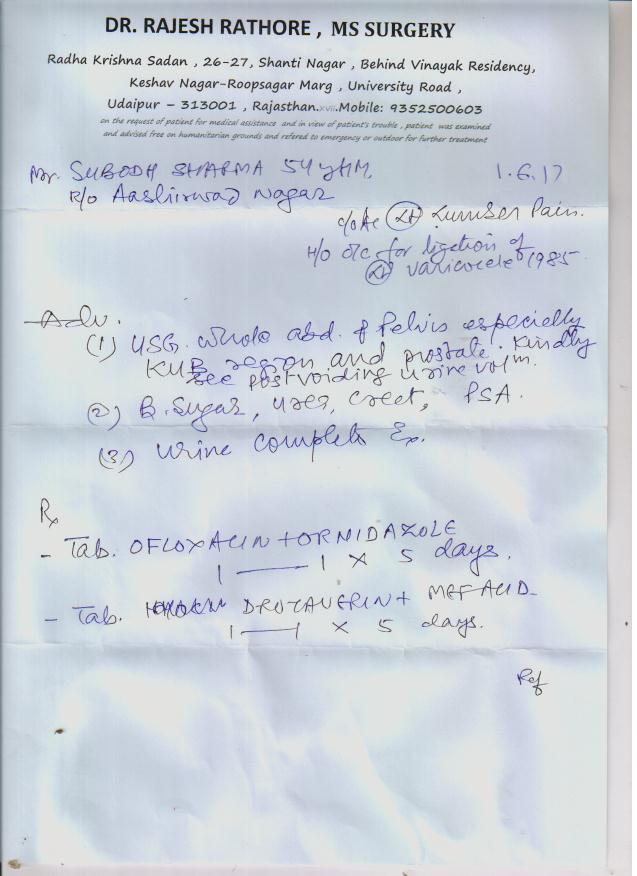 DR. RAJESH RATHORE , MS SURGERY
Radha Krishna Sadan , 26-27, Shanti Nagar , Behind Vinayak Residency,
Keshav Nagar-Roopsagar Marg , University Road ,
Udaipur – 313001 , Rajasthan.xvii.Mobile: 9352500603
on the request of patient for medical assistance and in view of patient's trouble , patient was examined
and advised free on humanitarian grounds and refered to emergency or outdoor for further treatment
Mr. SUBODH SHARMA 54 y/M. 1.6.17
R/o Aashirwad Nagar
c/o Ac LH Lumber Pain.
H/o o/c for ligation of
LH varicocele 1985.
Adv.
(1) USG. whole abd. & Pelvis especially
KUB region and prostate. Kindly
see postvoiding urine volm.
(2) B. Sugar, urea, creat, PSA.
(3) Urine complete Ex.
Rx
- Tab. OFLOXACIN + ORNIDAZOLE
1 — 1 X 5 days.
- Tab. DROTAVERIN + MEF ACID
1 — 1 X 5 days.
Ref